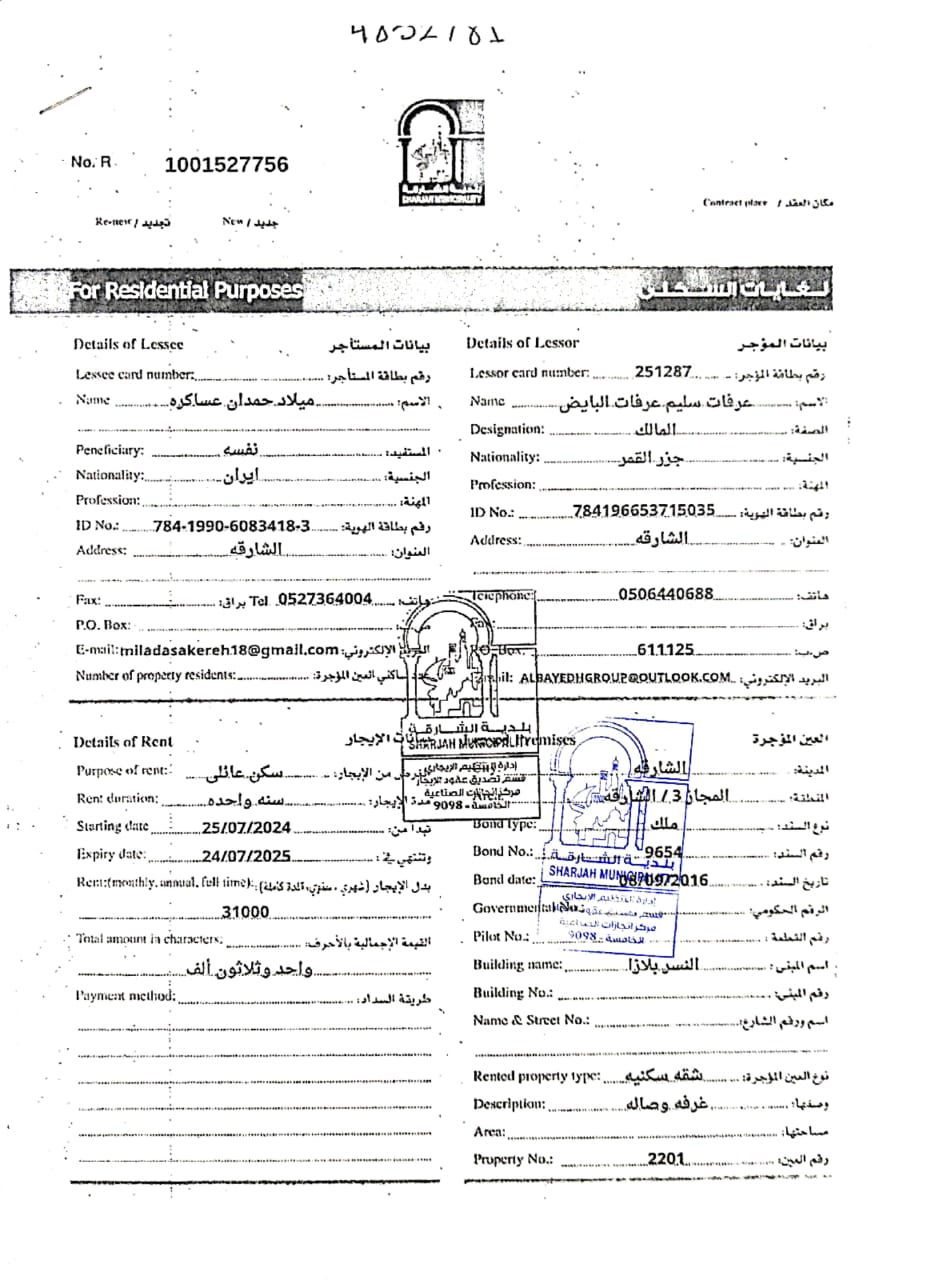 No. R 1001527756
بلدية الشارقة
SHARJAH MUNICIPALITY
Contract place / مكان العقد
Re-new / تجديد New / جديد
For Residential Purposes
لغايات السكن
Details of Lessee بيانات المستأجر
Lessee card number: رقم بطاقة المستأجر:
Name ميلاد حمدان عساكره الاسم:
Peneficiary: نفسه المستفيد:
Nationality: ايران الجنسية:
Profession: المهنة:
ID No.: 784-1990-6083418-3 رقم بطاقة الهوية:
Address: الشارقه العنوان:
Fax: براق: Tel 0527364004 هاتف:
P.O. Box: ص.ب:
E-mail: miladasakereh18@gmail.com البريد الإلكتروني:
Number of property residents: ساكني العين المؤجرة:
Details of Lessor بيانات المؤجر
Lessor card number: 251287 رقم بطاقة المؤجر:
Name عرفات سليم عرفات البايض الاسم:
Designation: المالك الصفة:
Nationality: جزر القمر الجنسية:
Profession: المهنة:
ID No.: 784196653715035 رقم بطاقة الهوية:
Address: الشارقه العنوان:
Telephone: 0506440688 هاتف:
براق:
P.O. Box: 611125 ص.ب:
Email: ALBAYEDHGROUP@OUTLOOK.COM البريد الإلكتروني:
Details of Rent بيانات الإيجار
Purpose of rent: سكن عائلى الغرض من الإيجار:
Rent duration: سنه واحده مدة الإيجار:
Starting date 25/07/2024 تبدا من:
Expiry date: 24/07/2025 وتنتهي في:
Rent:(monthly, annual, full time): بدل الإيجار (شهري ، سنوي، المدة كاملة):
31000
Total amount in characters: القيمة الإجمالية بالأحرف:
واحد وثلاثون ألف
Payment method: طريقة السداد:
Premises العين المؤجرة
الشارقه المدينة:
المجاز 3 / الشارقه المنطقة:
Bond type: ملك نوع السند:
Bond No.: 9654 رقم السند:
Bond date: 06/09/2016 تاريخ السند:
Governmental No.: الرقم الحكومي:
Pilot No.: رقم القطعة:
Building name: النسر بلازا اسم المبنى:
Building No.: رقم المبنى:
Name & Street No.: اسم ورقم الشارع:
Rented property type: شقه سكنيه نوع العين المؤجرة:
Description: غرفه وصاله وصفها:
Area: مساحتها:
Property No.: 2201 رقم العين:
بلدية الشارقة
SHARJAH MUNICIPALITY
إدارة التنظيم الإيجاري
قسم تصديق عقود الإيجار
مركز انجازات الصناعية
الخامسة - 9098
بلدية الشارقة
SHARJAH MUNICIPALITY
إدارة التنظيم الإيجاري
قسم تصديق عقود الإيجار
مركز انجازات الصناعية
الخامسة - 9098